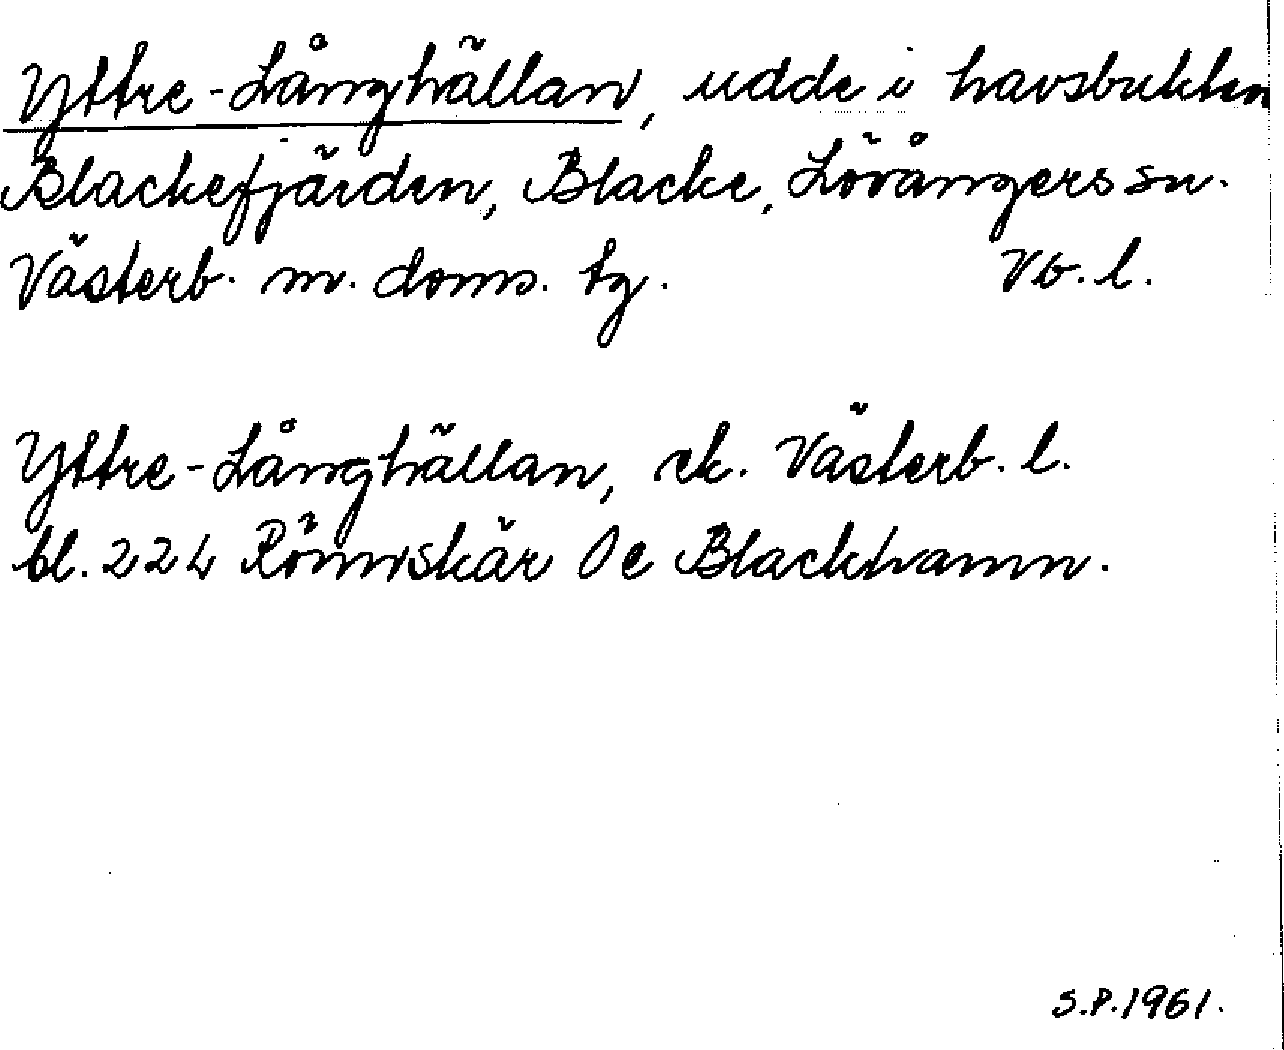 Yttre-Långhällan, udde i havsbukten
Blackefjärden, Blacke, Lövångers sn.
Västerb. m. doms. tg. Vb. l.
Yttre-Långhällan, ek. Västerb. l.
bl. 224 Rönnskär Oe Blackhamn.
S.P. 1961.